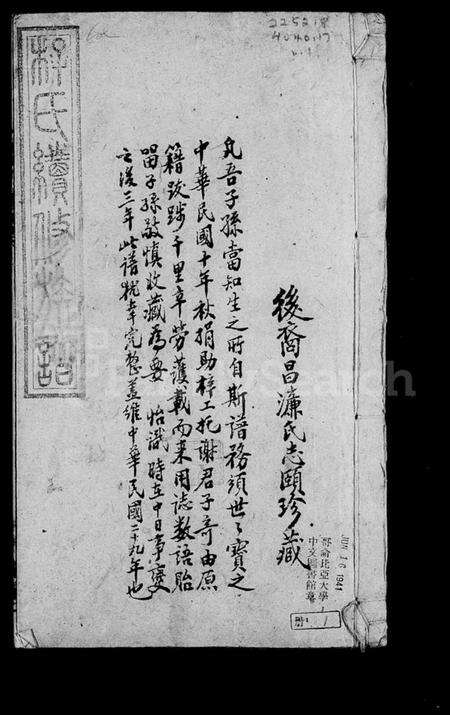 225218
4040.17
v.1
後裔昌濂氏志頤珍藏
凡吾子孫當知生之所自斯譜務須世々寶之
中華民國十年秋捐助梓工托謝君子奇由原
籍跋踄千里辛勞護載而来用誌數語貽
留子孫敬慎收藏為要 怡識 時在中日事變
之後三年此譜猶幸完整蓋維中華民國二十九年也
氏續修譜
JUN 16 1941
哥倫比亞大學
中文圖書館藏
册: 1